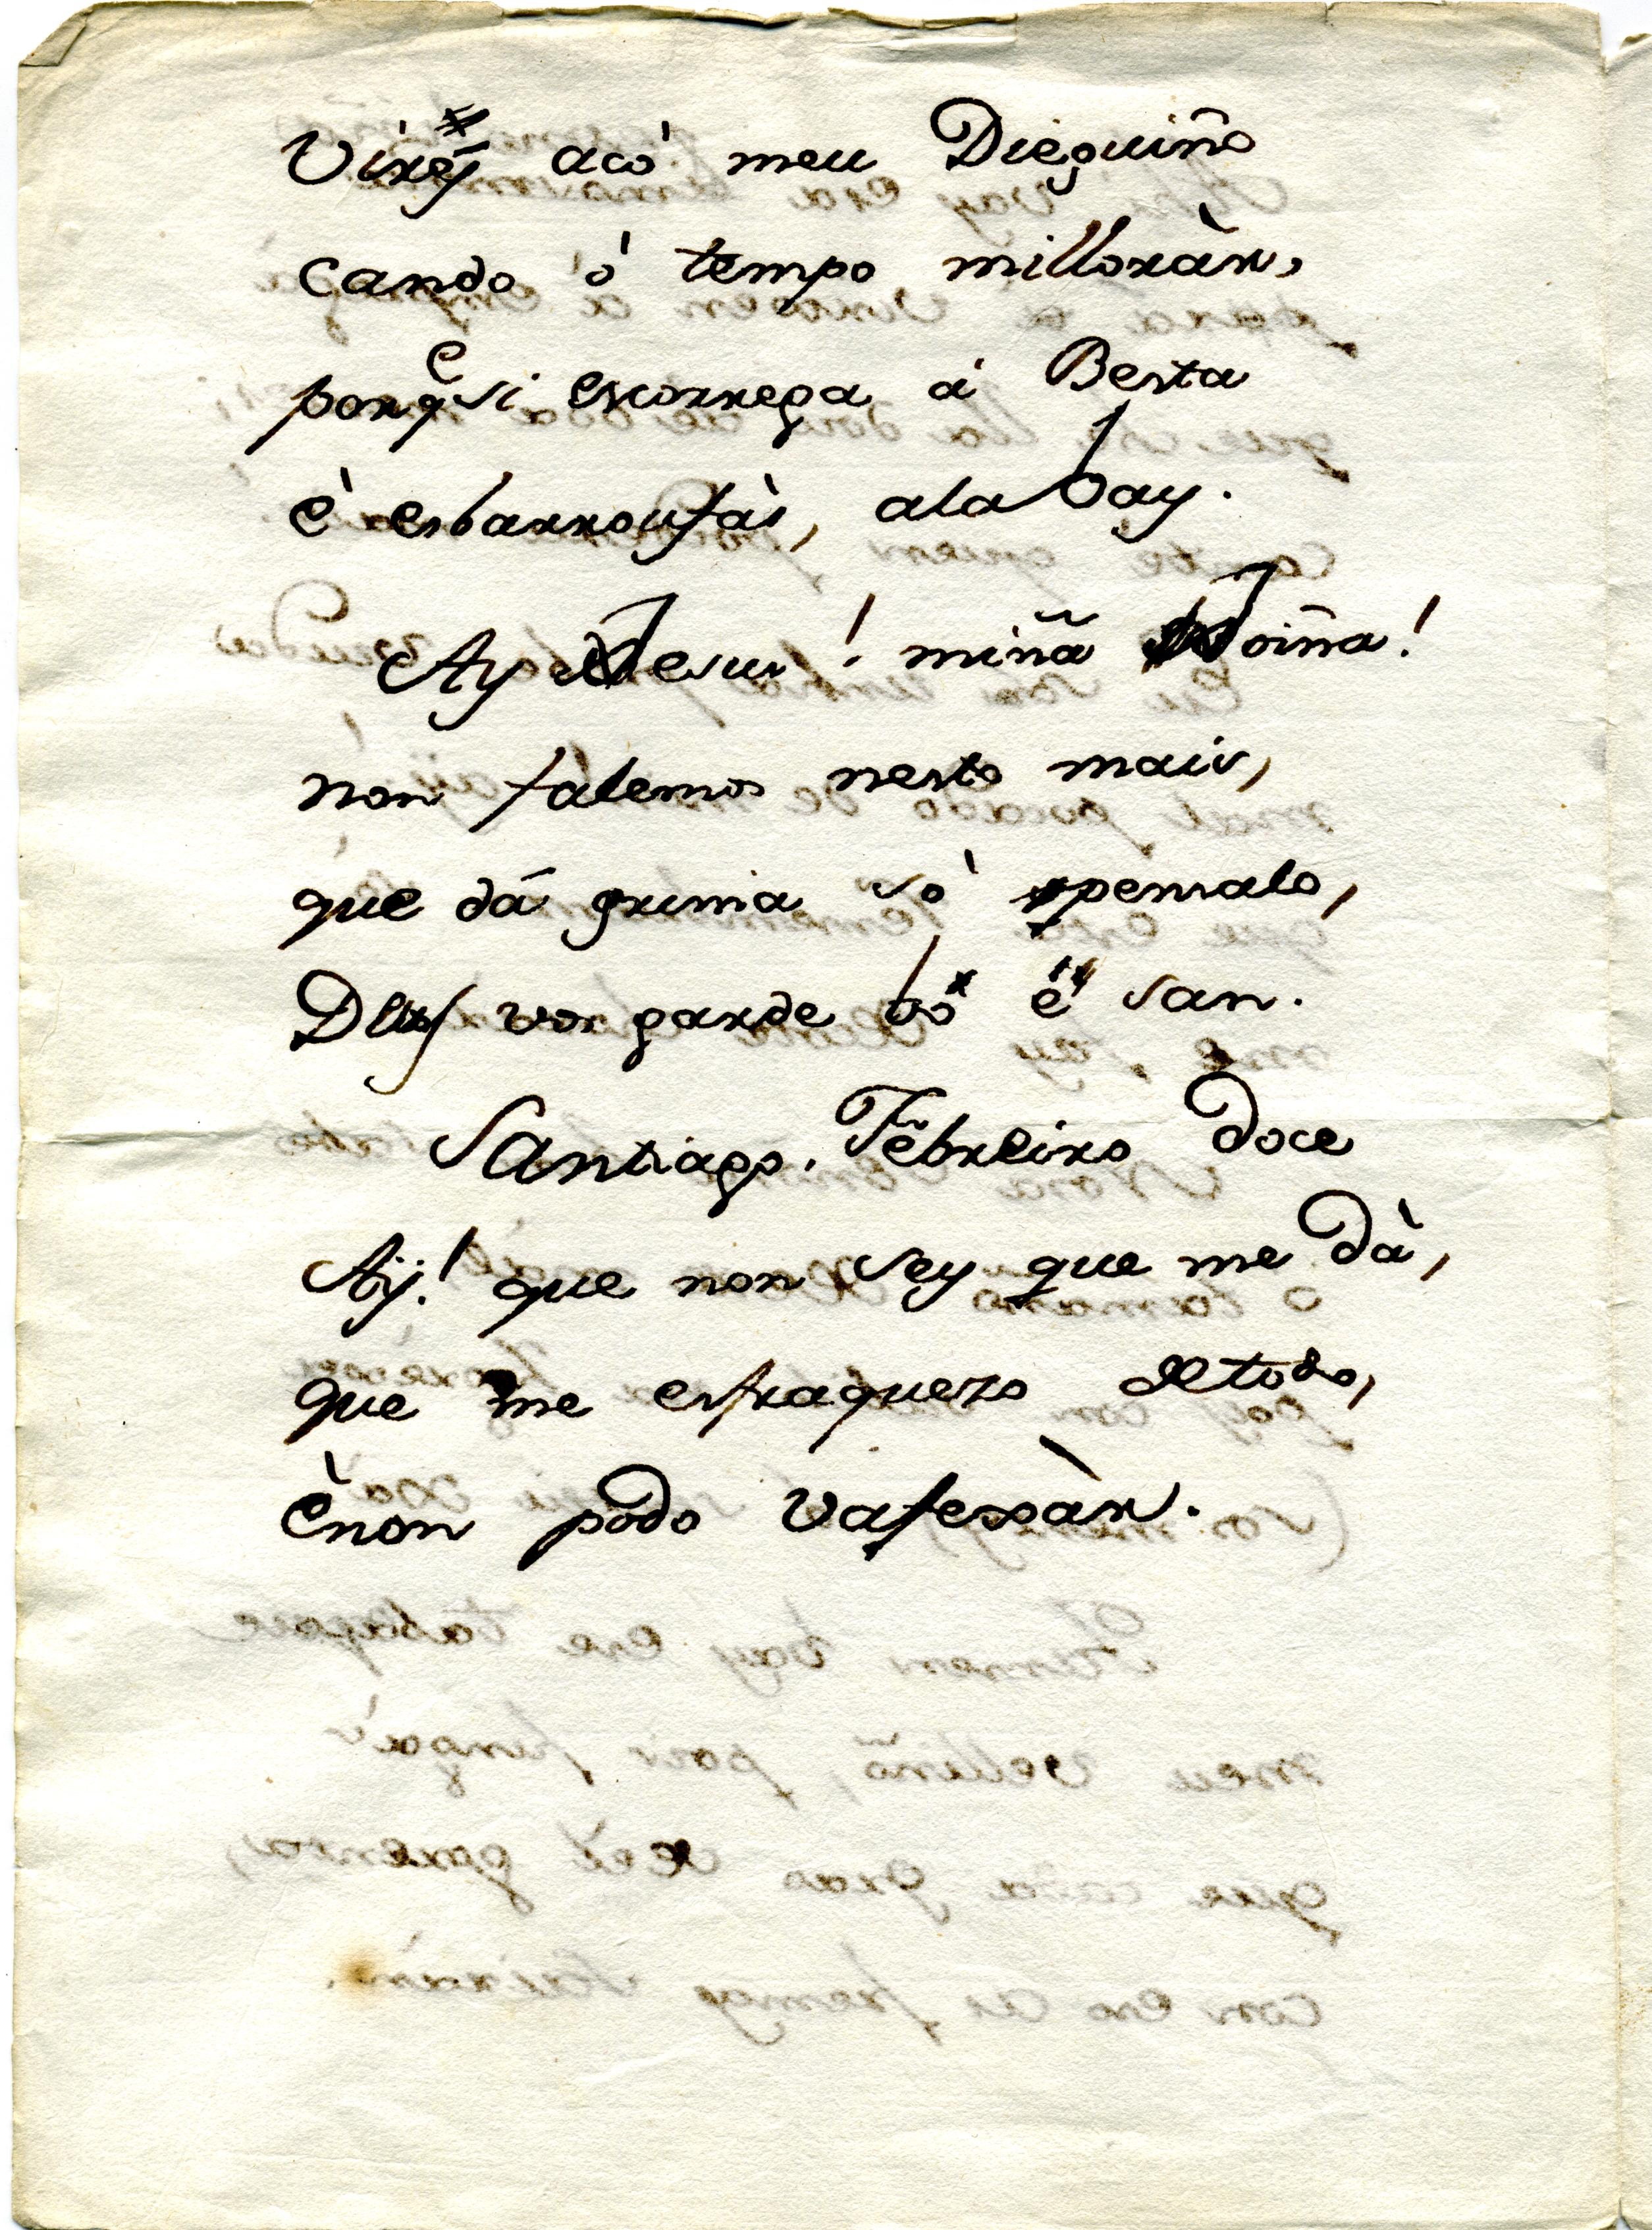 Virey acò meu Dieguiño
cando ò tempo milloràr,
porq̃ si escorrega á Besta
è esbarroufás, ala vay.
Ay Jesus! miña Joiña!
non falemos nesto mais,
que dá grima só pensalo,
Deus vos garde bó é san.
Santiago, Febreiro doce
Aÿ! que non sey que me dà,
que me esfraquezo detodo,
ènon podo vafexàr.